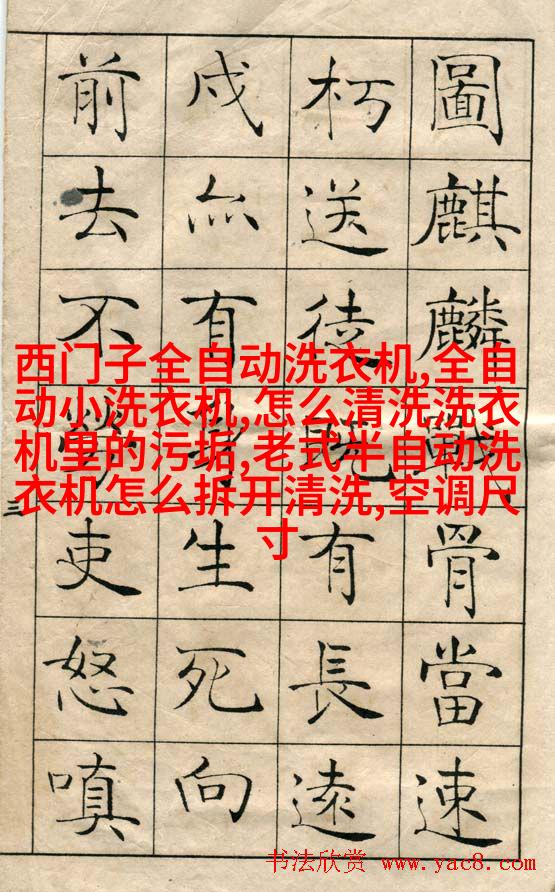 圖麒麟戰骨當速
朽送徒既有長遠
戍亦有生死向
前去不勞吏怒嗔
三
西门子全自动洗衣机,全自
动小洗衣机,怎么清洗洗衣
机里的污垢,老式半自动洗
衣机怎么拆开清洗,空调尺
寸
书法欣赏 www.yac8.com